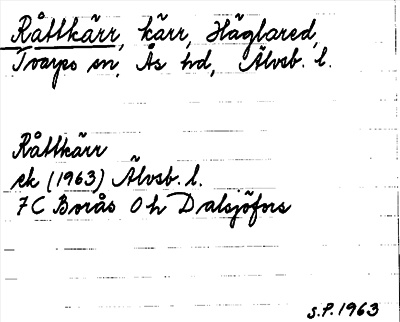 Råttkärr, kärr, Häglared,
Tvarps sn, Ås hd, Älvsb. l.
Råttkärr
ek (1963) Älvsb. l.
7C Borås 0h Dalsjöfors
S.P. 1963